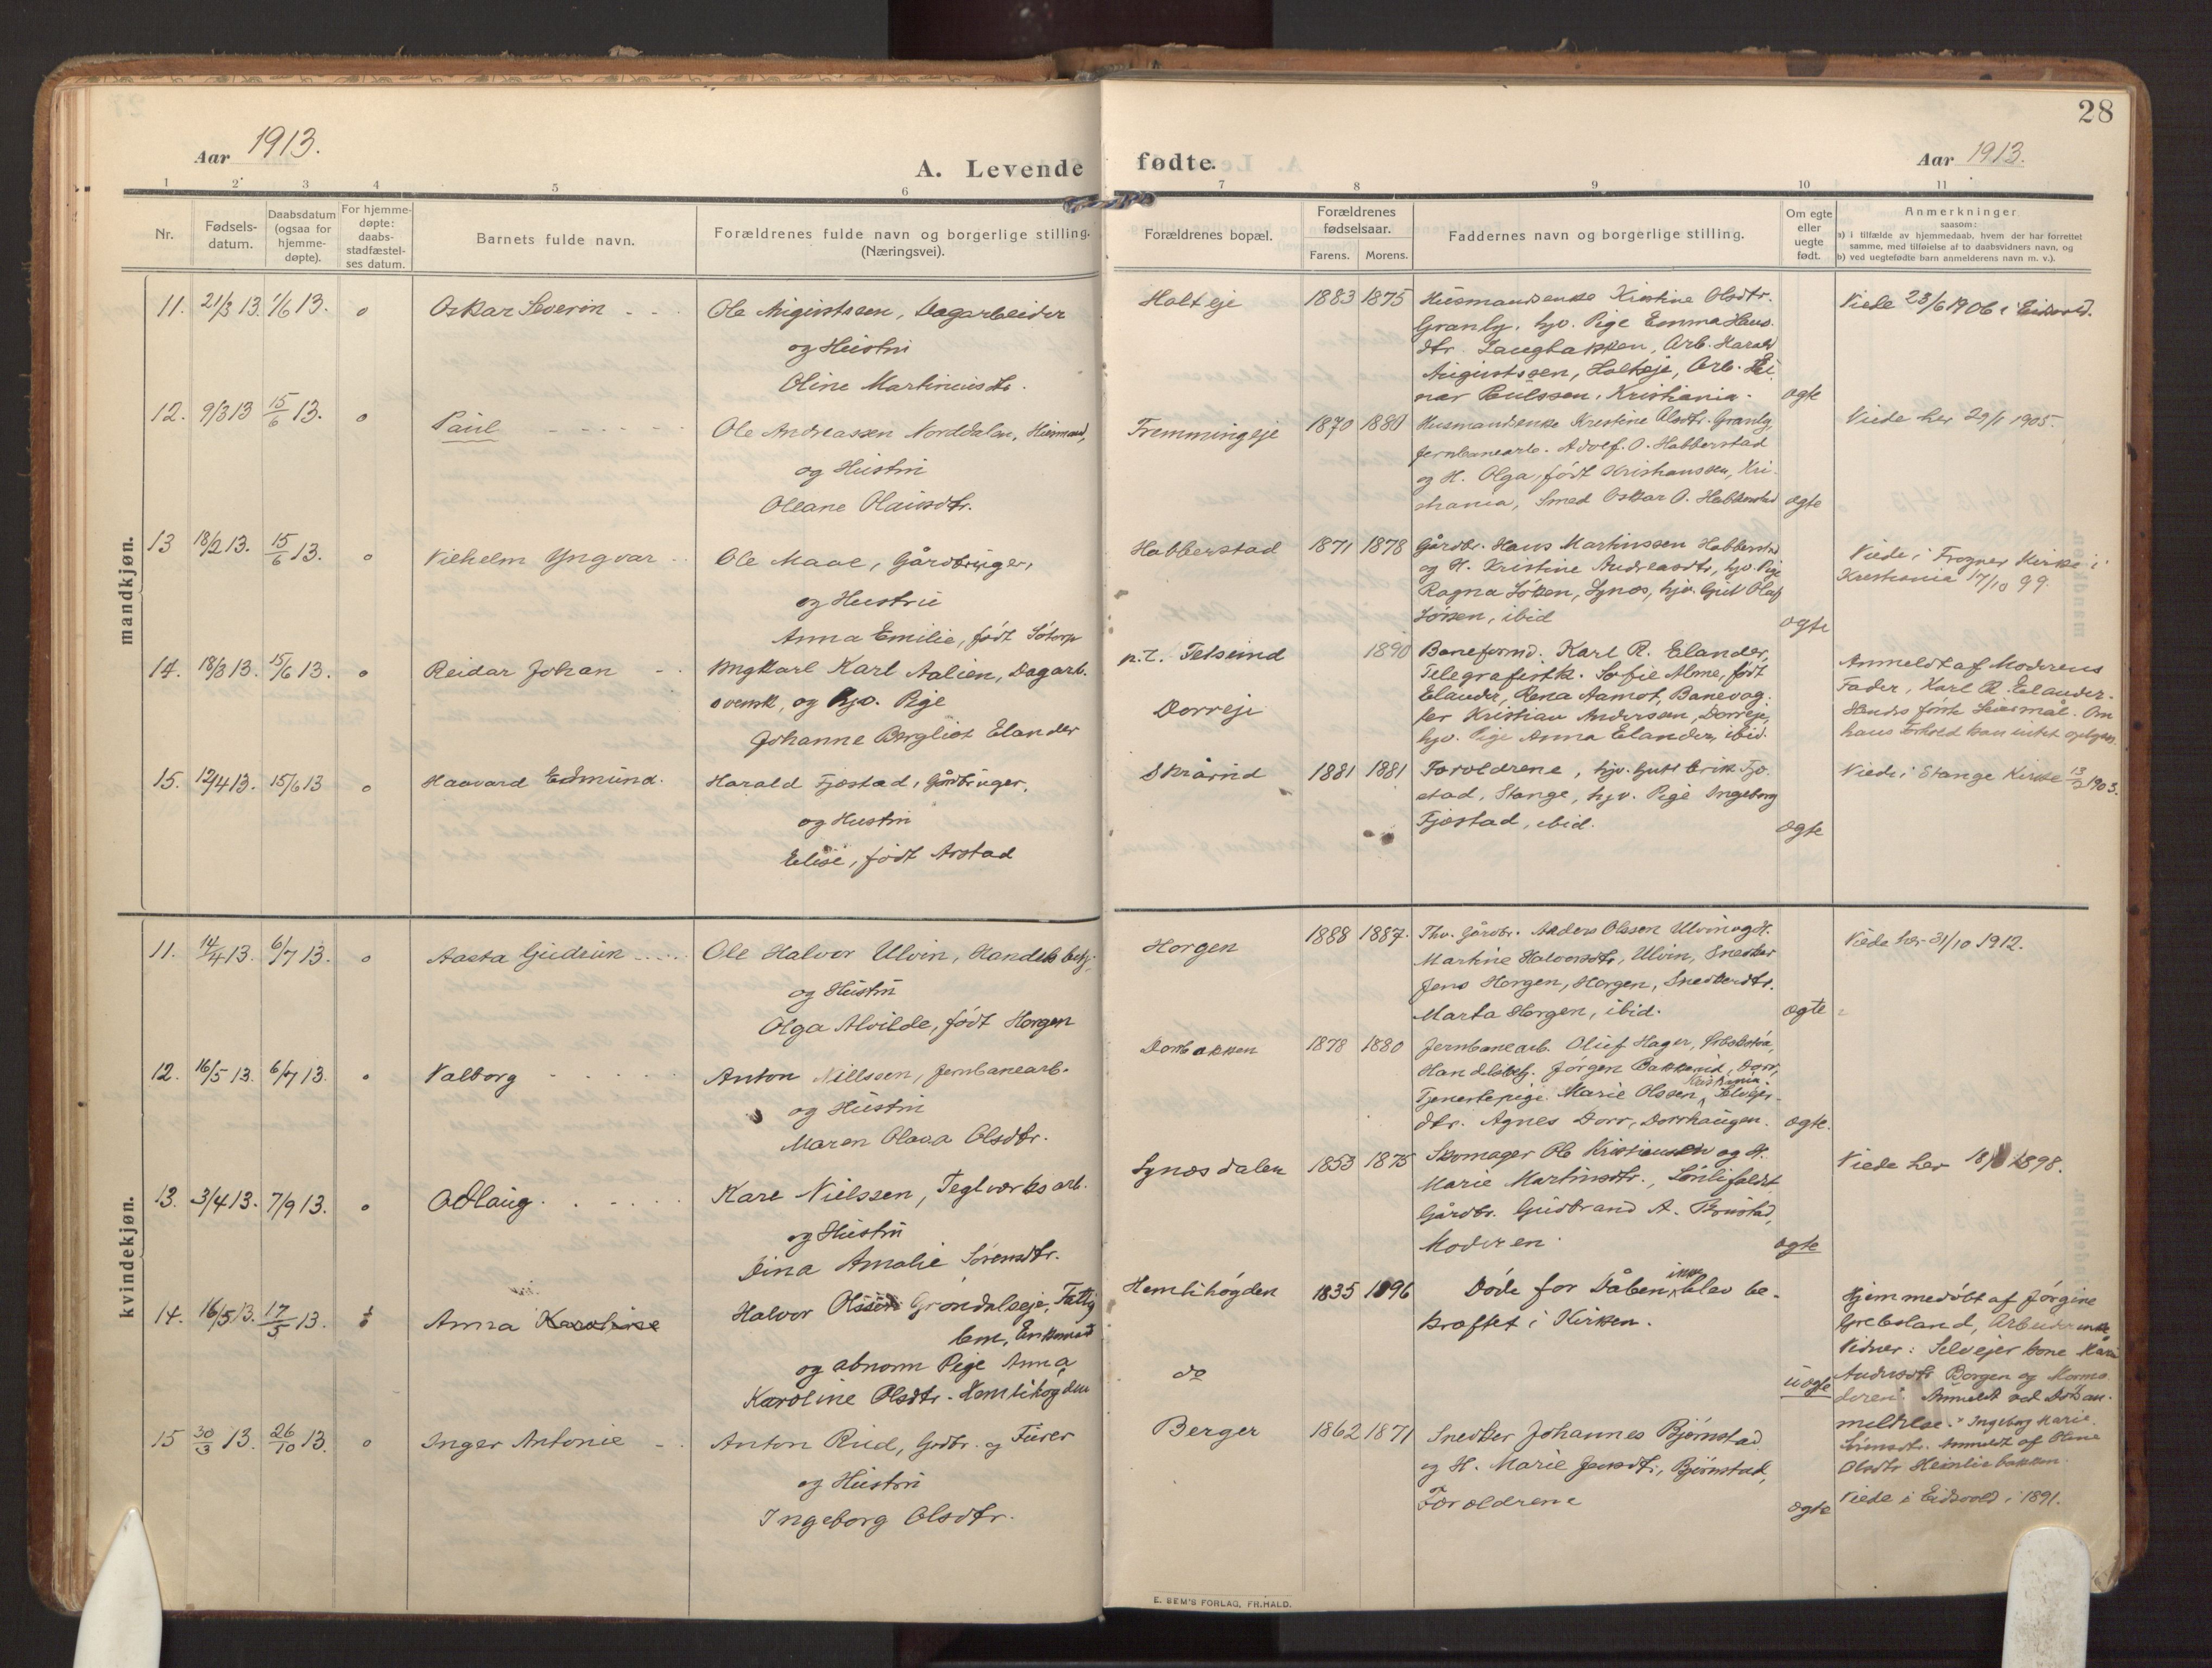 28
Aar 1913.
A. Levende
fødte.
Aar 1913.
1 2 3 4 5 6
7 8 9 10 11
Nr.
Fødsels-
datum.
Daabsdatum
(ogsaa for
hjemme-
døpte).
For hjemme-
døpte:
daabs-
stadfæstel-
ses datum.
Barnets fulde navn.
Forældrenes fulde navn og borgerlige stilling.
(Næringsvei).
Forældrenes bopæl.
Forældrenes
fødselsaar.
Farens. Morens.
Faddernes navn og borgerlige stilling.
Om egte
eller
uegte
født.
Anmerkninger
saasom:
a) i tilfælde av hjemmedaab, hvem der har forrettet
samme, med tilføielse af to daabsvidners navn, og
b) ved uegtefødte barn anmelderens navn m. v.).
mandkjøn.
11. 21/3 13. 1/6 13. o Oskar Severin
Ole Augustssen, Dagarbeider
og Hustru
Oline Martinusdtr.
Holteje 1883 1875
Husmandsenke Kristine Olsdtr.
Granly, hjv. Pige Emma Hans
dtr. Laugbakken, Arb. Harald
Augustssen, Holteje, Arb. Ei
nar Paulssen, Kristiania.
ægte
Viede 23/6 1906 i Eidsvold.
12. 9/3 13 15/6 13. o Paul
Ole Andreassen Norddalen, Husmand,
og Hustru
Oleane Olausdtr.
Tremmingeje 1870 1880
Husmandsenke Kristine Olsdtr. Granly,
Jernbanearb. Adolf. O. Habberstad
og H. Olga, født Kristianssen, Kri
stiania, Smed Oskar O. Habberstad
ægte
Viede her 29/1 1905.
13 18/2 13. 15/6 13. o Vilhelm Yngvar
Ole Maae, Gårdbruger,
og Hustru
Anna Emilie, født Sötorp
Habberstad 1871 1878
Gårdbr. Hans Martinssen Habberstad
og H. Kristine Andreasdtr, hjv. Pige
Ragna Lökken, Synæs, hjv. Gut Olaf
Lökken, ibid
ægte
Viede i Frogner Kirke i
Kristiania 17/10 99.
14. 18/3 13. 15/6 13. o Reidar Johan
Ungkarl Karl Aalien, Dagarb.
svensk, og hjv. Pige
Johanne Bergliot Elander
p.t. Telsund
Dorreje
1890
Baneformd. Karl R. Elander,
Telegrafistk. Sofie Alme, født
Elander, Rena Aamot, Banevog
ter Kristian Anderssen, Dorreje,
hjv. Pige Anna Elander, ibid.
Anmeldt af Moderens
Fader, Karl R. Elander.
Hendes første Leiermål. Om
hans Forhold kan intet oplyses.
15. 12/4 13. 15/6 13 o Haavard Edmund.
Harald Fjæstad, Gårdbruger,
og Hustru
Elise, født Arstad
Skrårud 1881 1881
Forældrene, hjv. Gut Erik Fjæ
stad, Stange, hjv. Pige Ingeborg
Fjæstad, ibid.
ægte
Viede i Stange Kirke 1903.
kvindekjøn.
11. 14/4 13. 6/7 13. o Aasta Gudrun
Ole Halvor Ulvin, Handelsbetj.
og Hustru
Olga Alvilde, født Horgen
Horgen 1888 1887.
Thv. Gårdbr. Anders Olssen Ulvin og H.
Martine Halvorsdtr, Ulvin, Snedker
Jens Horgen, Horgen, Snedkerdtr.
Marta Horgen, ibid.
ægte
Viede her 31/10 1912.
12. 16/5 13. 6/7 13. o Valborg
Anton Nillssen, Jernbanearb.
og Hustru
Maren Olava Olsdtr.
Dorrbakken 1878 1880
Jernbanearb. Oluf Hager,
Handelsbetj. Jørgen Bakkerud, Dorr,
Tjenestepige Marie Olssen, Kristiania, Selvejer
dtr. Agnes Dorr, Dorrhaugen.
ægte.
13. 3/4 13. 7/9 13. o Odlaug
Karl Nielssen, Teglverksarb.
og Hustru
Dina Amalie Sørensdtr.
Synæsdalen 1853 1875
Skomager Ole Kristianssen og H.
Marie Martinsdtr.,
Gårdbr. Gudbrand A. Bönstad,
Moderen.
ægte
Viede her 1898.
14. 16/5 13. 17/5 13. Anna Karoline
Halvor Olssen Grøndalseje, Fattig
lem, Enkemand
og abnorm Pige Anna
Karoline Olsdtr. Hemlihögden
Hemlihögden 1835 1896
do
Döde for Dåben ikke blev be-
kræftet i Kirken.
uægte
Hjemmedöbt af Jørgine
Grebsland, Arbeiderenke
Vidner: Selvejerkone Mari
Andersdtr. Borgen og Mormo
deren. Anmeldt ved Dödsan-
meldelse. Ingeborg Marie
Sörensdtr. Anmeldt af Oline
Olsdtr Hemlibakken.
15 30/3 13. 26/10 13. o Inger Antonie
Anton Rud, Grdbr. og Furer
og Hustru
Ingeborg Olsdtr.
Berger 1862 1871
Snedker Johannes Bjørnstad
og H. Marie Jensdtr., Bjørnstad,
Forældrene
ægte
Viede i Eidsvold i 1891.
E. SEM'S FORLAG, FR.HALD.